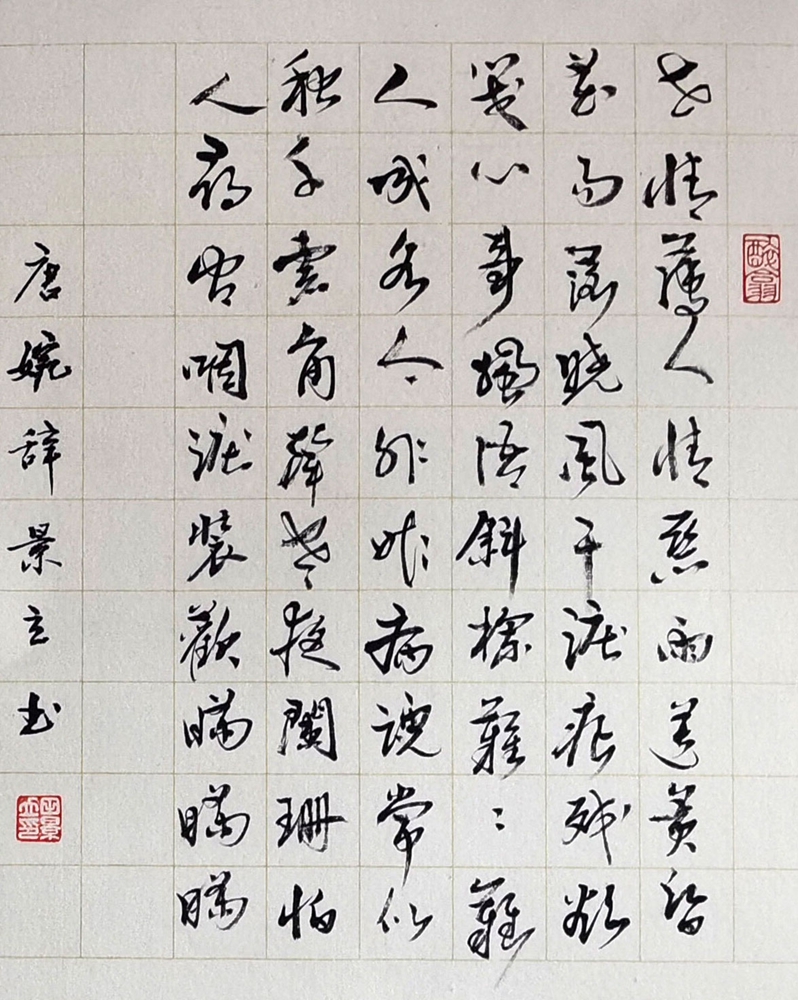 醉翁
世情薄人情恶雨送黄昏
花易落晓风干淚痕残欲
箋心事獨语斜欄難〻難
人成各今非昨病魂常似
秋千索角聲寒夜闌珊怕
人尋问咽淚裝歡瞞瞞瞞
唐婉辞景立书